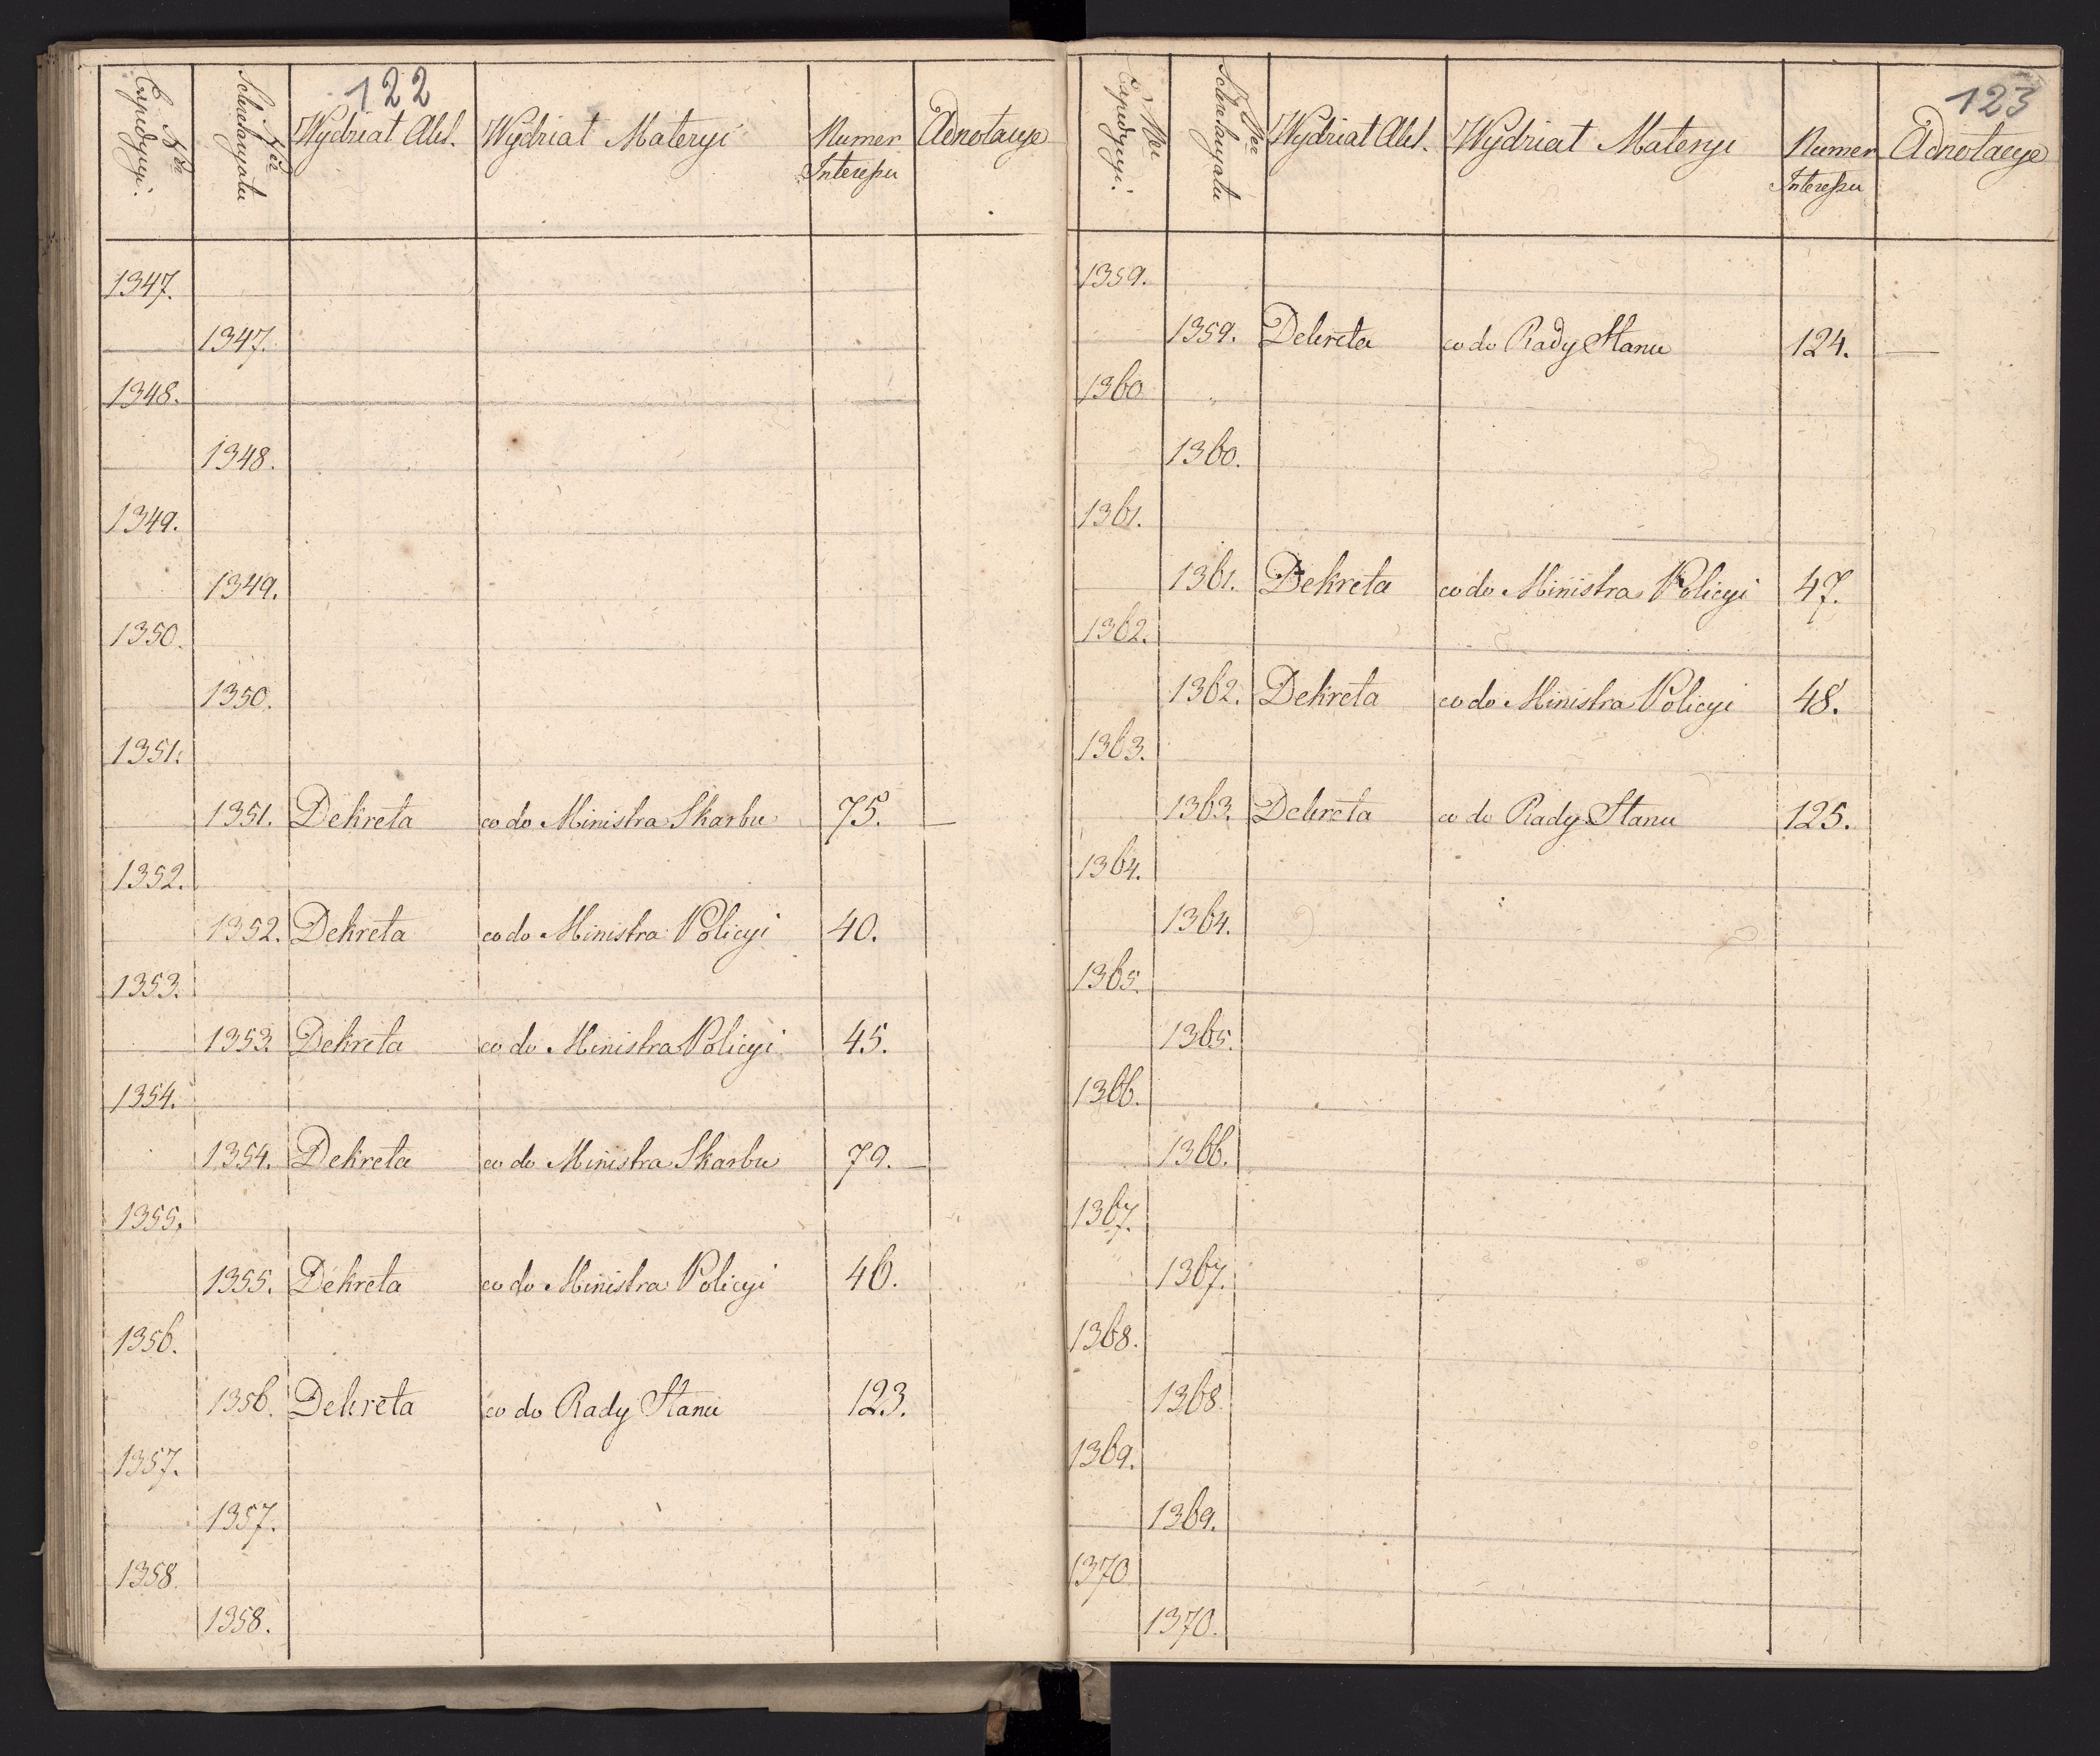 122
Nro Expedycyi. Nro Sekretaryatu Wydział Akt. Wydział Materyi Numer Interessu Adnotacye
1347.
1347.
1348.
1348.
1349.
1349.
1350.
1350.
1351.
1351. Dekreta co do Ministra Skarbu 75. —
1352.
1352. Dekreta co do Ministra Policyi 40.
1353.
1353. Dekreta co do Ministra Policyi 45.
1354.
1354. Dekreta co do Ministra Skarbu 79. —
1355.
1355. Dekreta co do Ministra Policyi 46.
1356.
1356. Dekreta co do Rady Stanu 123.
1357.
1357.
1358.
1358.
123
Expedycyi. Sekretaryatu Wydział Akt. Wydział Materyi Numer Interessu Adnotacye
1359.
1359. Dekreta co do Rady Stanu 124. —
1360
1360.
1361.
1361. Dekreta co do Ministra Policyi 47.
1362.
1362. Dekreta co do Ministra Policyi 48.
1363.
1363. Dekreta co do Rady Stanu 125.
1364.
1364.
1365.
1365.
1366.
1366.
1367.
1367.
1368.
1368.
1369.
1369.
1370
1370.